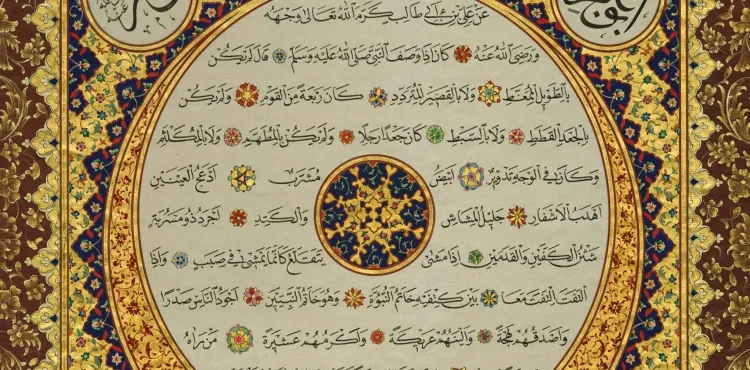 عن علي بن أبي طالب كرم الله تعالى وجهه
ورضي الله عنه كان إذا وصف النبي صلى الله عليه وسلم قال لم يكن
بالطويل الممغط ولا بالقصير المتردد كان ربعة من القوم ولم يكن
بالجعد القطط ولا بالسبط كان جعدا رجلا ولم يكن بالمطهم ولا بالمكلثم
وكان في الوجه تدوير أبيض مشرب أدعج العينين
أهدب الأشفار جليل المشاش والكتد أجرد ذو مسربة
شثن الكفين والقدمين إذا مشى يتقلع كأنما يمشي في صبب وإذا
التفت التفت معا بين كتفيه خاتم النبوة وهو خاتم النبيين أجود الناس صدرا
وأصدقهم لهجة وألينهم عريكة وأكرمهم عشيرة من رآه